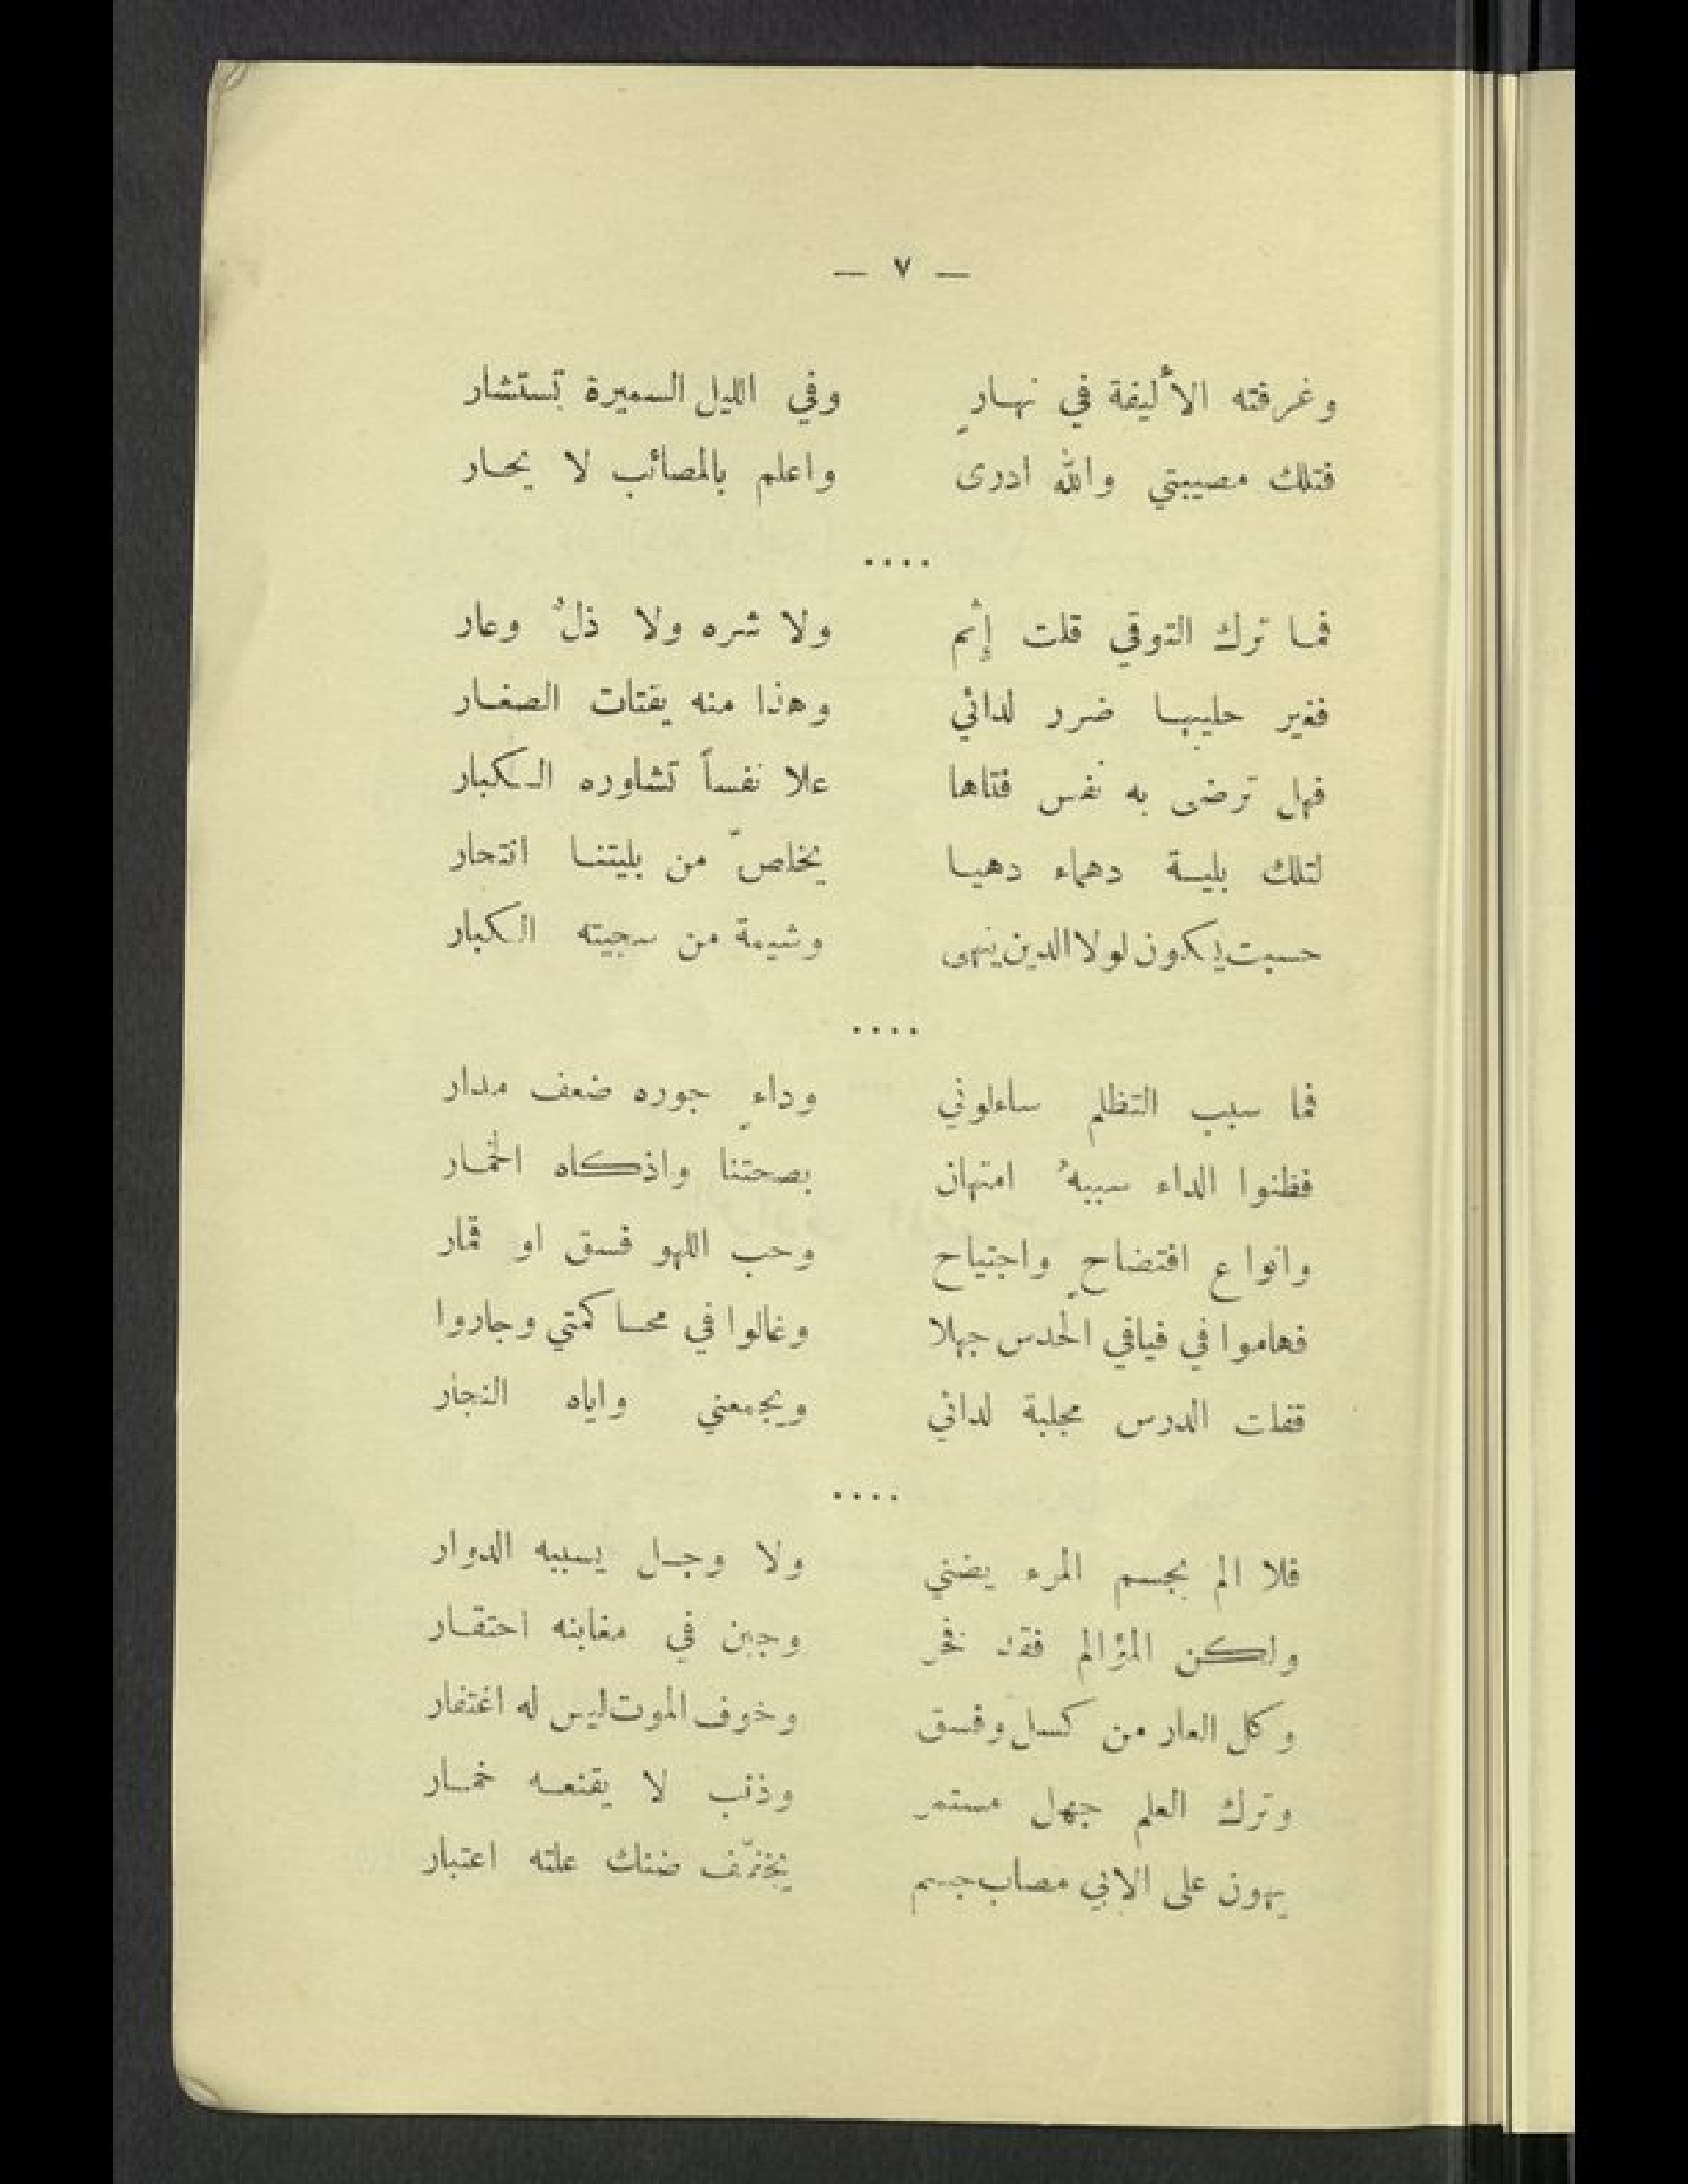 — ٧ —
وغرفته الأليفة في نهـارٍ وفي الليل السميرة تستشار
فتلك مصيبتي والله ادرى واعلم بالمصائب لا يحـار
....
فمـا ترك التوقي قلت إثم ولا شره ولا ذلٌ وعار
فغير حليبهـا ضرر لدائي وهذا منه يقتات الصغـار
فهل ترضى به نفس فتاها علا نفساً تشاوره الـكبار
لتلك بليـة دهماء دهيـا يخلصّ من بليتنـا انتحار
حسبت يكون لولا الدين ينهى وشيمة من سجيته الكبار
....
فما سبب التظلم ساءلوني وداءٍ جوره ضعف مدار
فظنوا الداء سببهُ امتهان بصحتنا واذكاه الخمـار
وانواع افتضاحٍ واجتياح وحب اللهو فسق او قمار
فهاموا في فيافي الحدس جهلا وغالوا في محـاكمتي وجاروا
فقلت الدرس مجلبة لدائي ويجمعني واياه النجار
....
فلا الم بجسم المرء يضني ولا وجـل يسببه الدوار
ولكن المؤالم فقد فخر وجبن في مغابنه احتقـار
وكل العار من كسل وفسق وخوف الموت ليس له اغتفار
وترك العلم جهل مستمر وذنب لا يقنعـه خمـار
يهون على الابي مصاب جسم يخفّف ضنك علته اعتبار